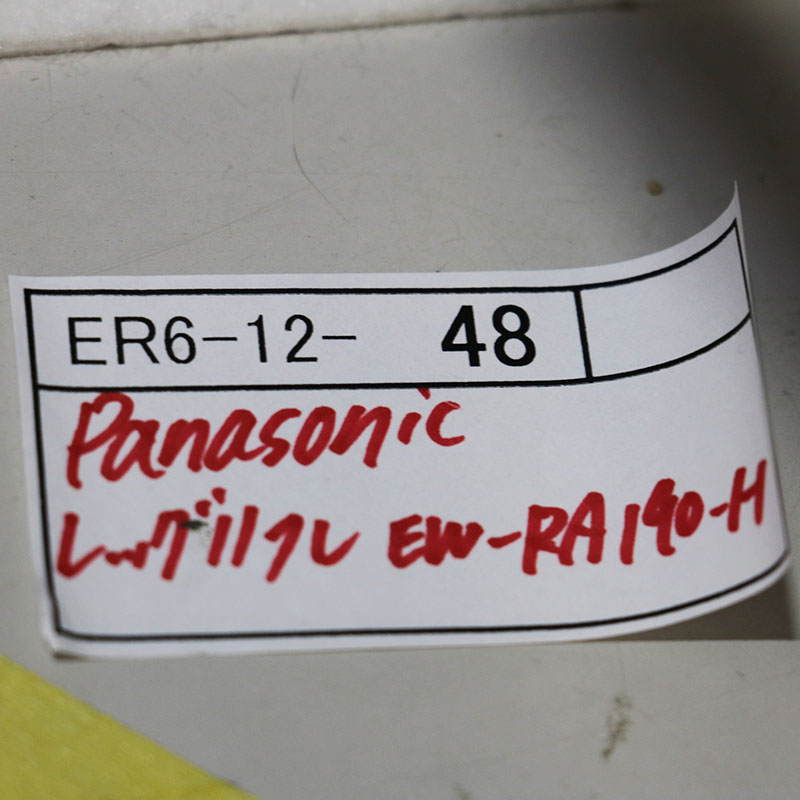 ER6-12- 48
Panasonic
レッグリフレ EW-RA190-H